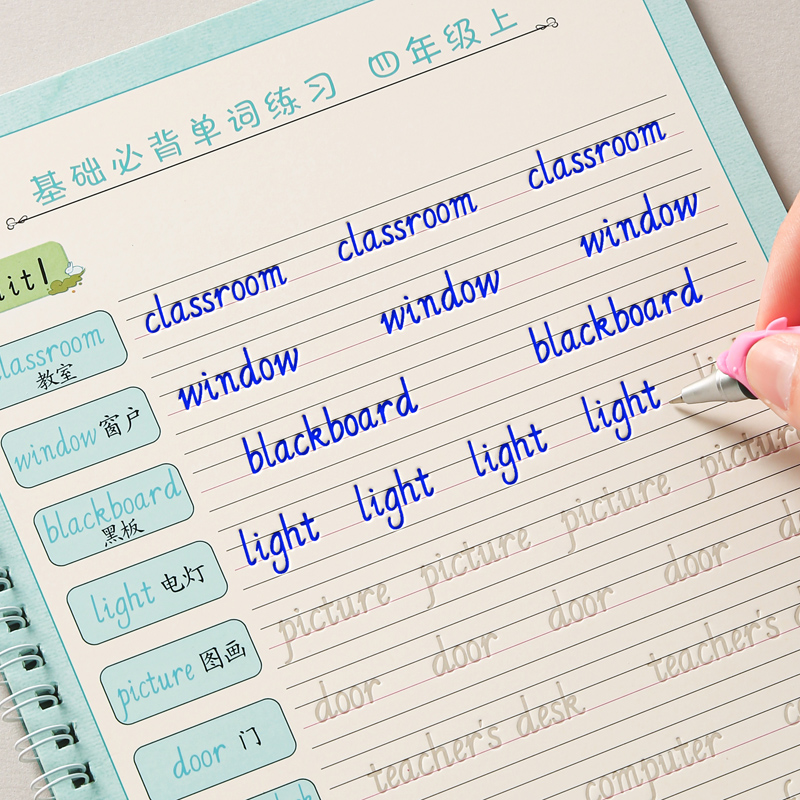 基础必背单词练习 四年级上
classroom 教室
classroom classroom classroom
window 窗户
window window window
blackboard 黑板
blackboard blackboard
light 电灯
light light light light
picture 图画
picture picture picture picture
door 门
door door door door
teacher's desk teacher's
computer